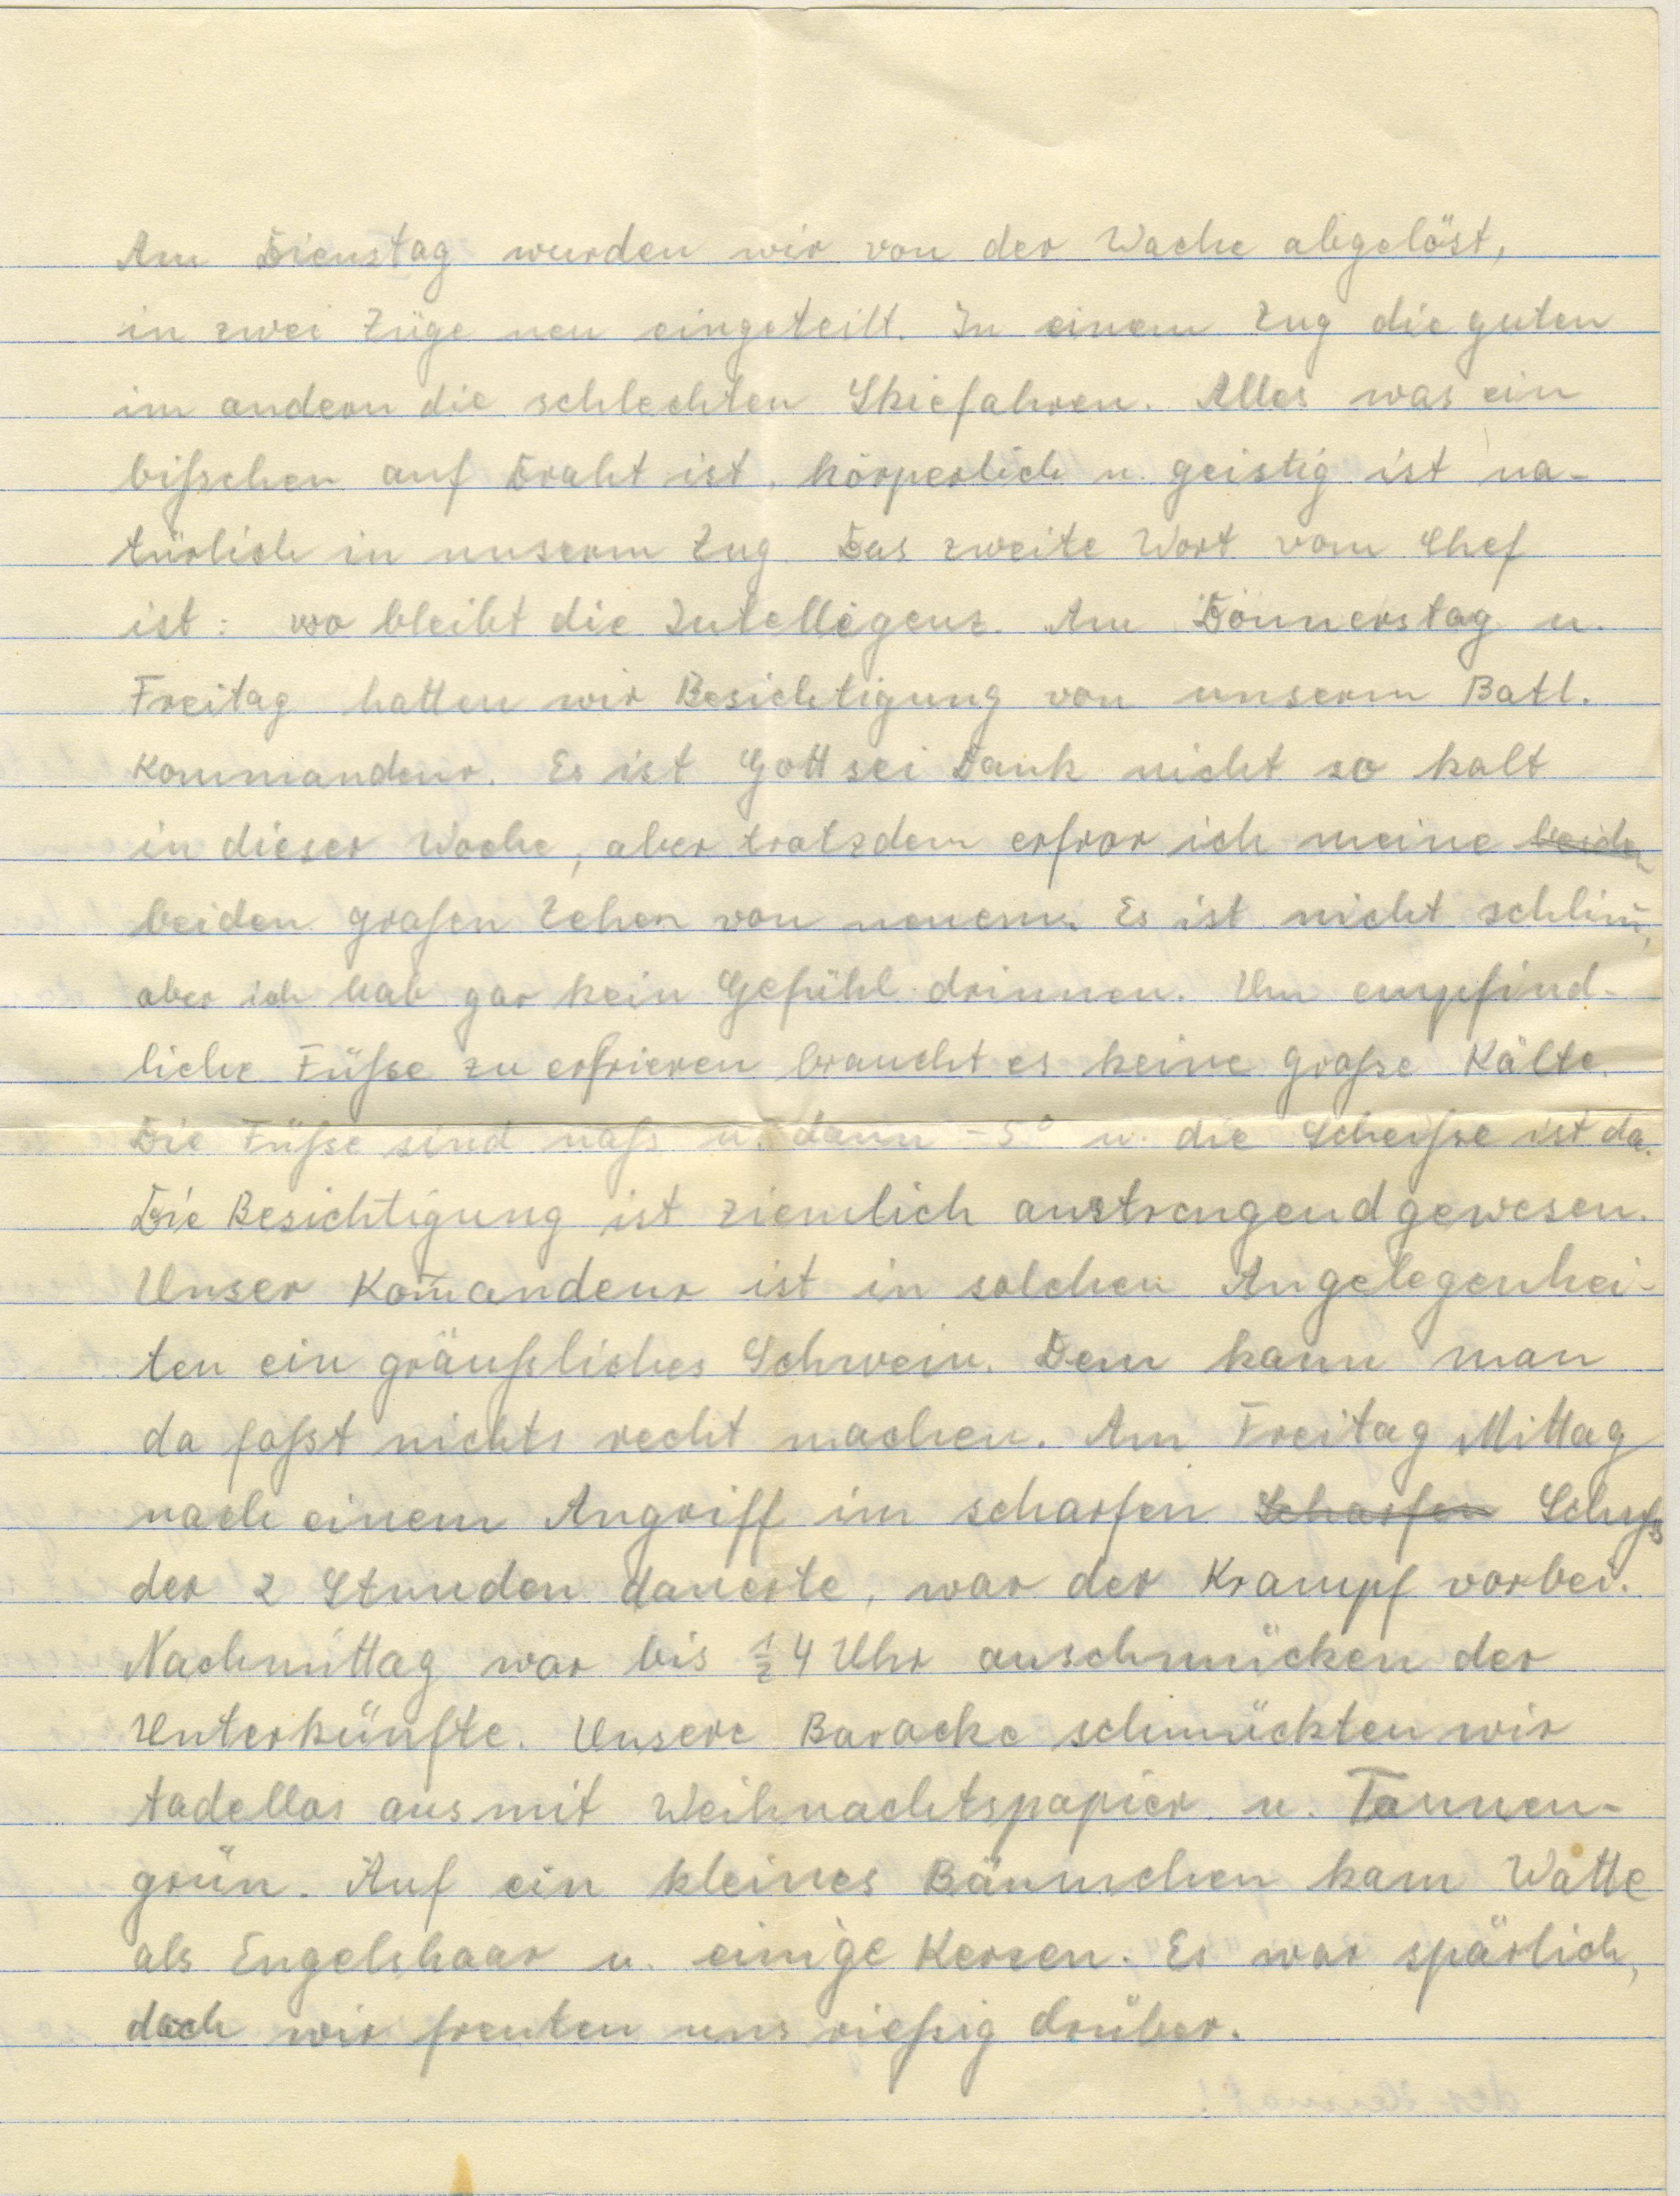 Am Dienstag wurden wir von der Wache abgelöst,
in zwei Züge neu eingeteilt. In einem Zug die guten
im andern die schlechten Skiefahren. Alles was ein
bißschen auf Draht ist, körperlich u. geistig ist na-
türlich in unserm Zug. Das zweite Wort vom Chef
ist: wo bleibt die Intelligenz. Am Donnerstag u.
Freitag hatten wir Besichtigung von unserm Batl.
Kommandeur. Es ist Gott sei Dank nicht so kalt
in dieser Woche, aber trotzdem erfror ich meine beiden
beiden großen Zehen von neuem. Es ist nicht schlim̄,
aber ich hab gar kein Gefühl drinnen. Um empfind-
liche Füße zu erfrieren braucht es keine große Kälte.
Die Füße sind naß u. dann -5° u. die Scheiße ist da.
Die Besichtigung ist ziemlich anstrengend gewesen.
Unser Kom̄andeur ist in solchen Angelegenhei-
ten ein gräußliches Schwein. Dem kann man
da faßt nichts recht machen. Am Freitag Mittag
nach einem Angriff im scharfen Scharfen Schuß
der 2 Stunden dauerte, war der Krampf vorbei.
Nachmittag war bis ½ 4 Uhr anschmücken der
Unterkünfte. Unsere Baracke schmückten wir
tadellos aus mit Weihnachtspapier u. Tannen-
grün. Auf ein kleines Bäumchen kam Watte
als Engelshaar u. einige Kerzen. Es war spärlich,
doch wir freuten uns rießig drüber.